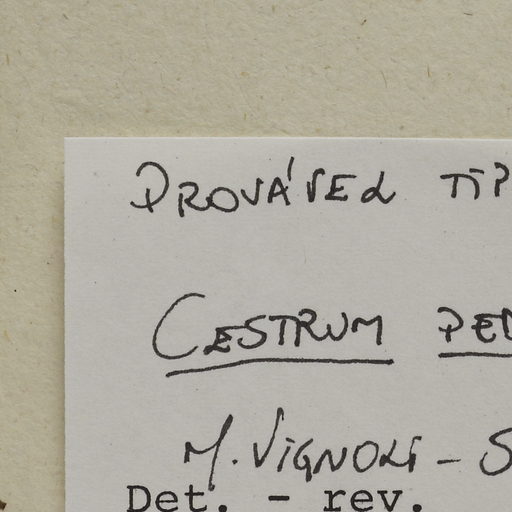 PROVÁVEL TIP
CESTRUM PED
M. VIGNOLI - S
Det. - rev.